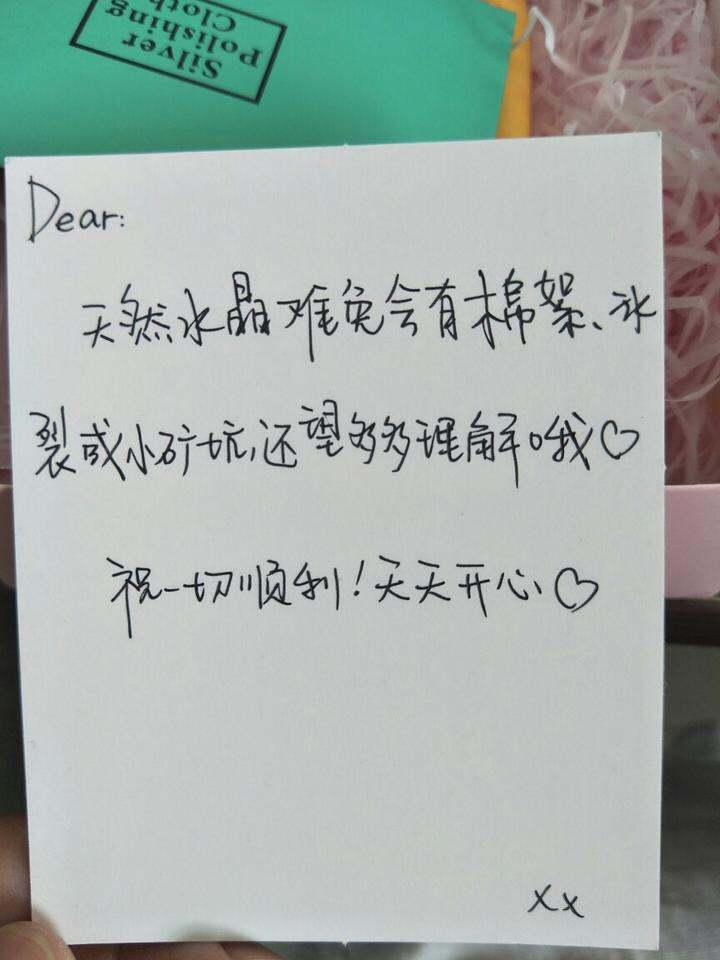 Silver
Polishing
Cloth
Dear:
天然水晶难免会有棉絮、冰
裂或小矿坑,还望多多理解哦♡
祝一切顺利!天天开心、♡
xx